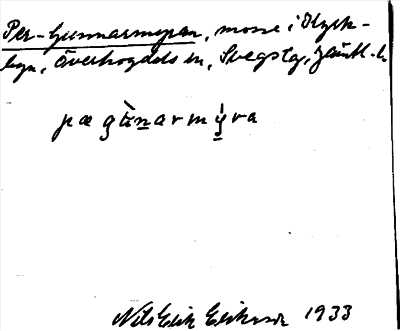 Per-Gunnarmyran, mosse i
byn, Överhogdals sn, Svegs tg, Jämtl. l.
pægùnarmýra
Nils Erik Eriksson 1933